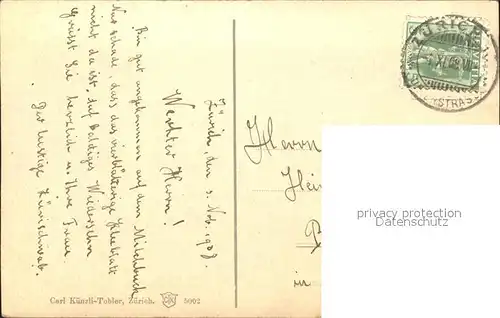 Zürich, den 3. Nov. 1908.
Werther Herrn!
Bin gut angekommen auf dem Milchbuck
Nur schade, dass das vierblätterige Kleeblatt
nicht da ist. Auf baldiges Wiedersehn
Grüsst Sie herzlich u. Ihre Frau
Der lustige Zürischwab.
Carl Künzli-Tobler, Zürich.
5002
ZÜRICH
XI.08.VII
STRAS
Herrn
Hein
in
privacy protection
Datenschutz